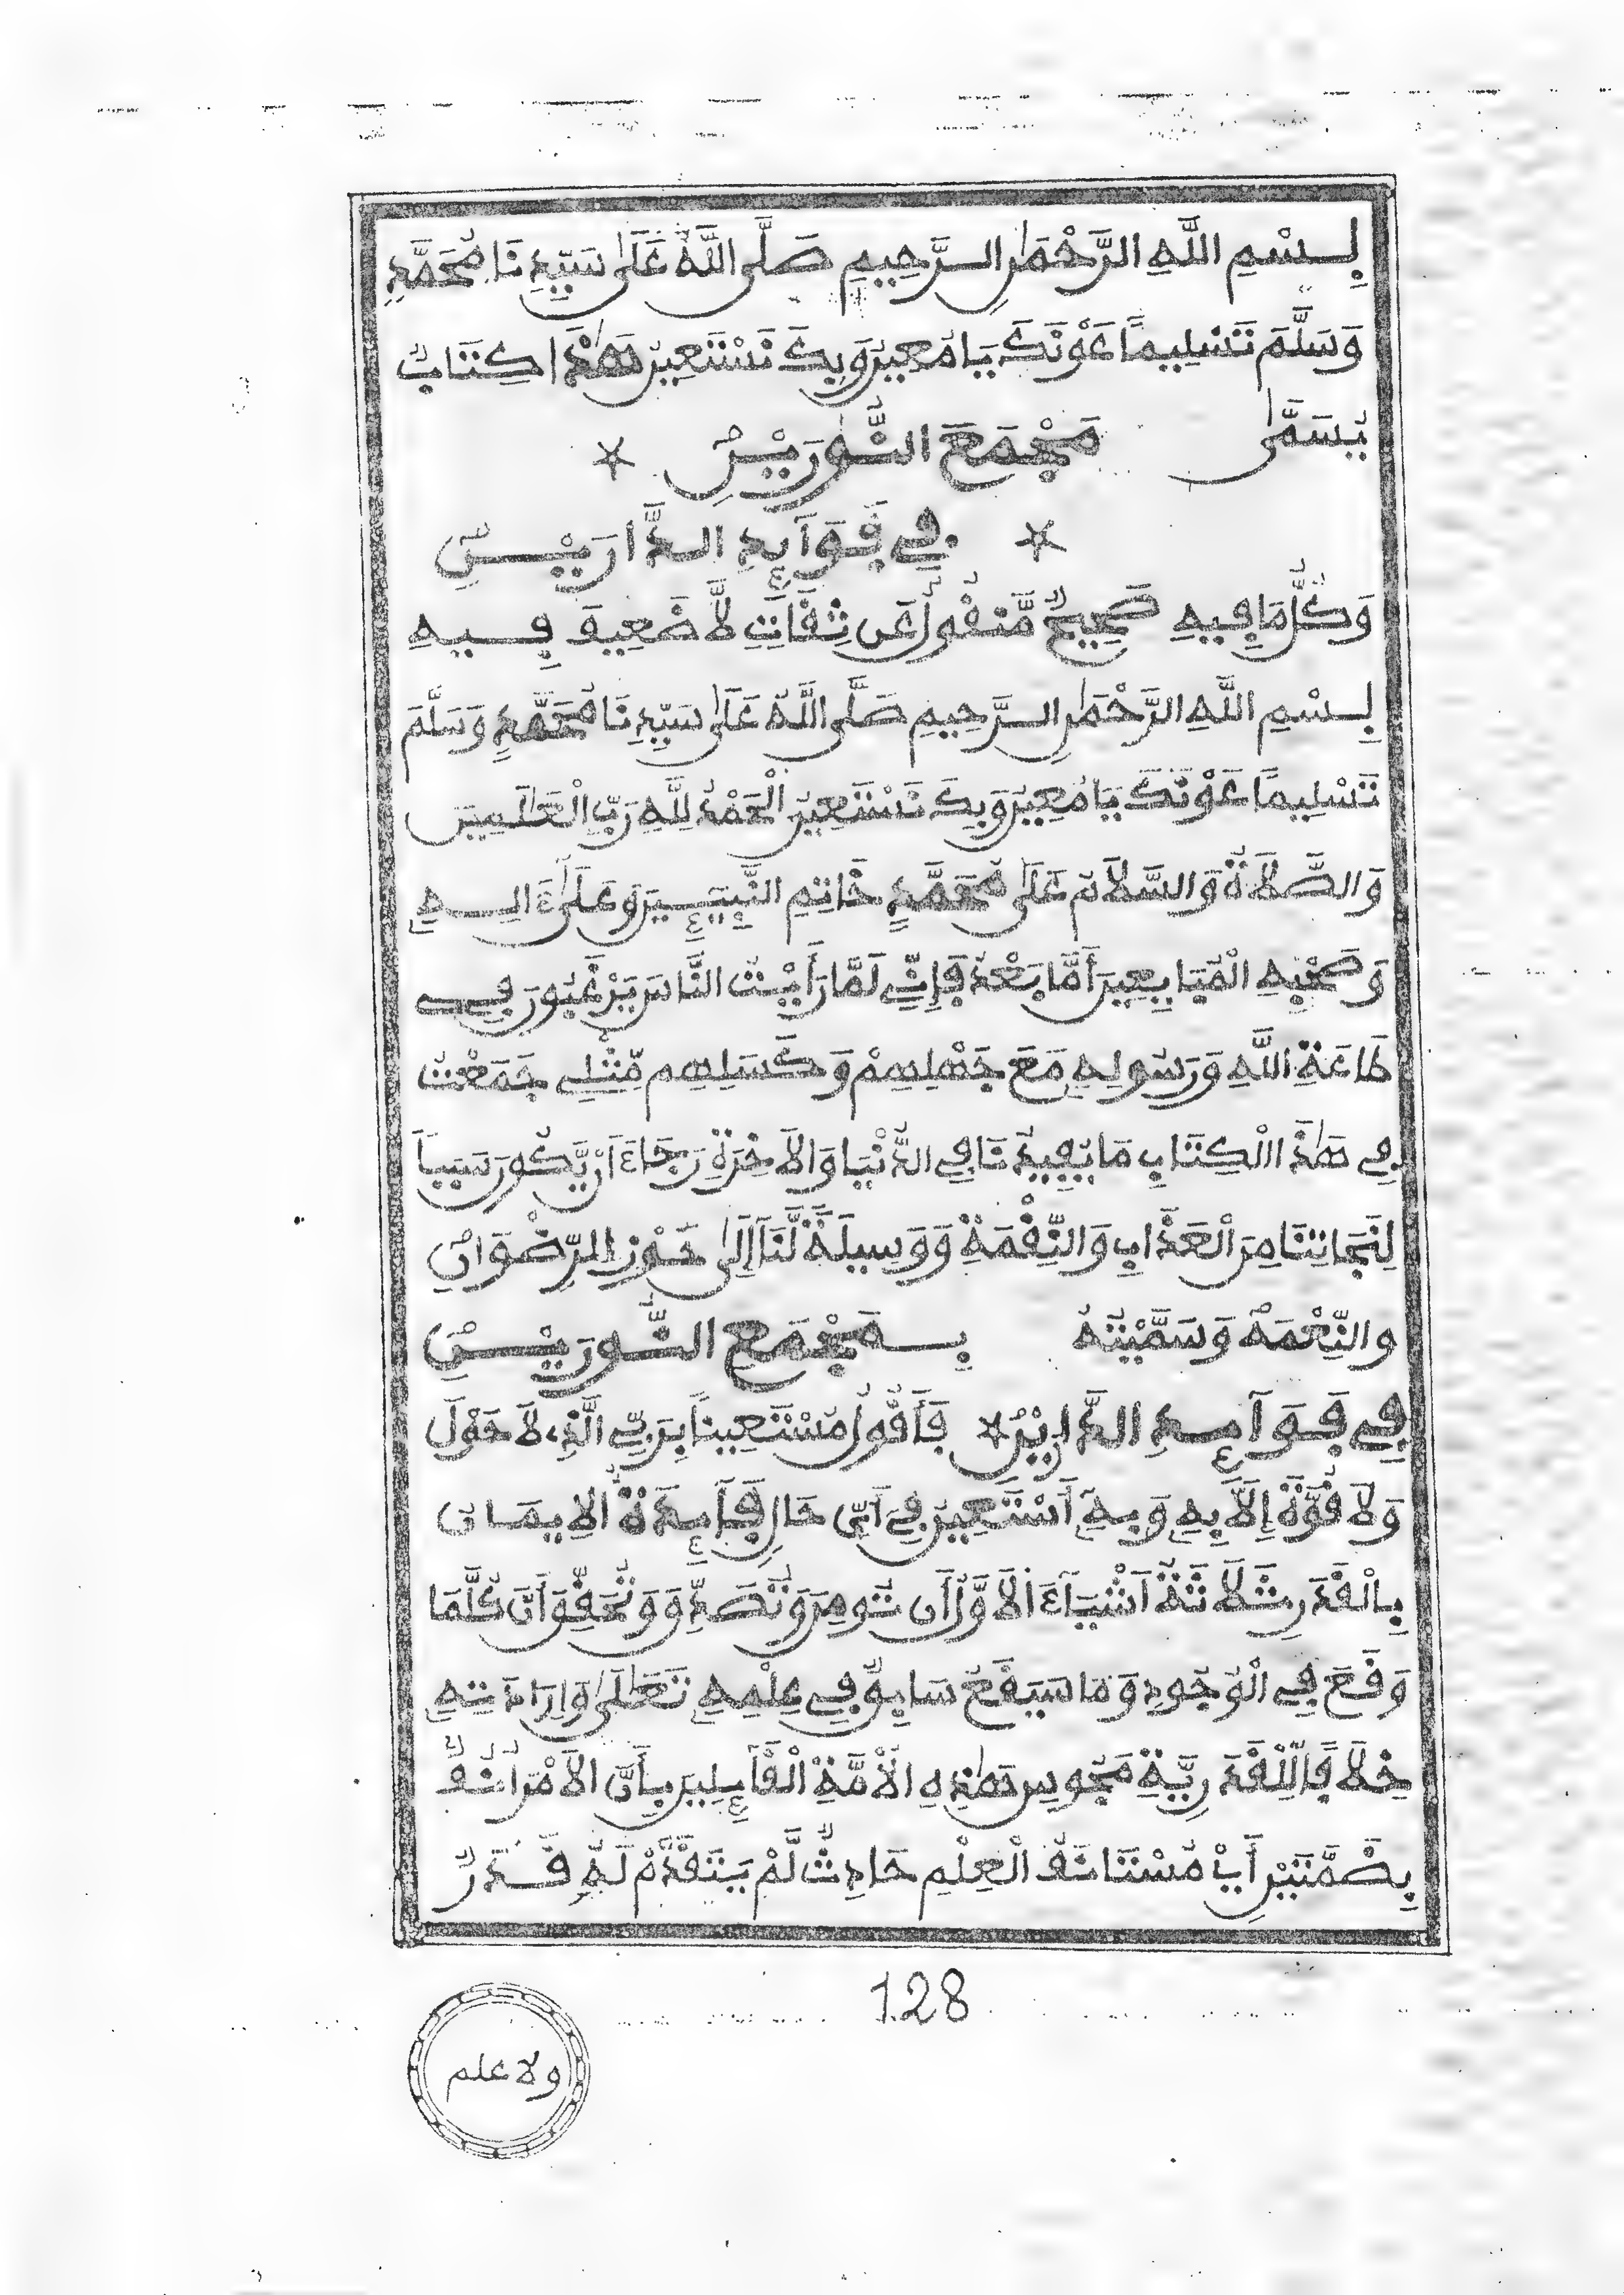 بِسْمِ اللَّهِ الرَّحْمَٰنِ الرَّحِيمِ صَلَّى اللَّهُ عَلَىٰ سَيِّدِنَا مُحَمَّدٍ
وَسَلَّمَ تَسْلِيماً عَوْنَكَ يَا مُعِينُ وَبِكَ نَسْتَعِينُ هَٰذَا كِتَابٌ
يُسَمَّىٰ مَجْمَعَ النُّورَيْنِ ☆
☆ فِي فَوَائِدِ الدَّارَيْنِ
وَكُلُّ مَا فِيهِ صَحِيحٌ مَّنْقُولٌ عَن ثِقَاتٍ لَّا ضَعِيفَ فِيهِ
بِسْمِ اللَّهِ الرَّحْمَٰنِ الرَّحِيمِ صَلَّى اللَّهُ عَلَىٰ سَيِّدِنَا مُحَمَّدٍ وَسَلَّمَ
تَسْلِيماً عَوْنَكَ يَا مُعِينُ وَبِكَ نَسْتَعِينُ الْحَمْدُ لِلَّهِ رَبِّ الْعَٰلَمِينَ
وَالصَّلَاةُ وَالسَّلَامُ عَلَىٰ مُحَمَّدٍ خَاتِمِ النَّبِيِّينَ وَعَلَىٰ ءَالِهِ
وَصَحْبِهِ الْمُتَابِعِينَ أَمَّا بَعْدُ فَإِنِّي لَمَّا رَأَيْتُ النَّاسَ يَرْغَبُونَ فِي
طَاعَةِ اللَّهِ وَرَسُولِهِ مَعَ جَهْلِهِمْ وَكَسَلِهِم مِّثْلِي جَمَعْتُ
فِي هَٰذَا الْكِتَابِ مَا يُفِيدُنَا فِي الدُّنْيَا وَالْأَخِرَةِ رَجَاءَ أَن يَّكُونَ سَبَباً
لِنَجَاتِنَا مِنَ الْعَذَابِ وَالنِّقْمَةِ وَوَسِيلَةً لَّنَا إِلَىٰ حَوْزِ الرِّضْوَانِ
والنِّعْمَةِ وَسَمَّيْتُهُ بِمَجْمَعِ النُّورَيْنِ
فِي فَوَائِدِ الدَّارَيْنِ ☆ فَأَقُولُ مُسْتَعِيناً بِرَبِّيَ الَّذِي لَا حَوْلَ
وَلَا قُوَّةَ إِلَّا بِهِ وَبِهِ أَسْتَعِينُ فِي أَيِّ حَالٍ فَائِدَةٌ الْإِيمَانُ
بِالْقَدَرِ ثَلَاثَةُ أَشْيَاءَ الْأَوَّلُ أَن تُومِنَ وَتُصَدِّقَ وَتُحَقِّقَ أَنَّ كُلَّمَا
وَقَعَ فِي الْوُجُودِ وَمَا سَيَقَعُ سَابِقٌ فِي عِلْمِهِ تَعَٰلَىٰ وَإِرَادَتِهِ
خِلَافاً لِلْقَدَرِيَّةِ مَجُوسِ هَٰذِهِ الْأُمَّةِ الْقَائِلِينَ بِأَنَّ الْأَمْرَ أُنُفٌ
بِضَمَّتَيْنِ أَيْ مُسْتَانَفُ الْعِلْمِ حَادِثٌ لَّمْ يَتَقَدَّمْ لَهُ قَدَرٌ
128
ولا علم